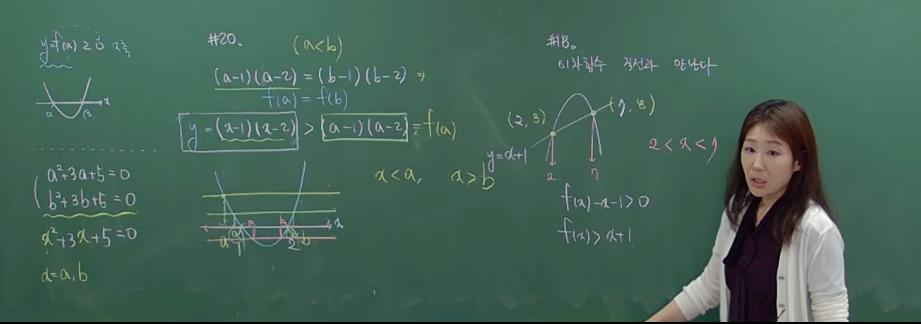 y=f(x) ≥ 0 x축
α β x
a²+3a+5=0
b²+3b+5=0
x²+3x+5=0
x=a,b
#20.
(a<b)
(a-1)(a-2) = (b-1)(b-2) ⇒
f(a) = f(b)
y=(x-1)(x-2) > (a-1)(a-2) = f(a)
x<a, x>b
a 1 2 b x
#18.
이차함수 직선과 만난다
(2, 3)
(7, 8)
y=x+1
2 7
2<x<7
f(x)-x-1>0
f(x)>x+1